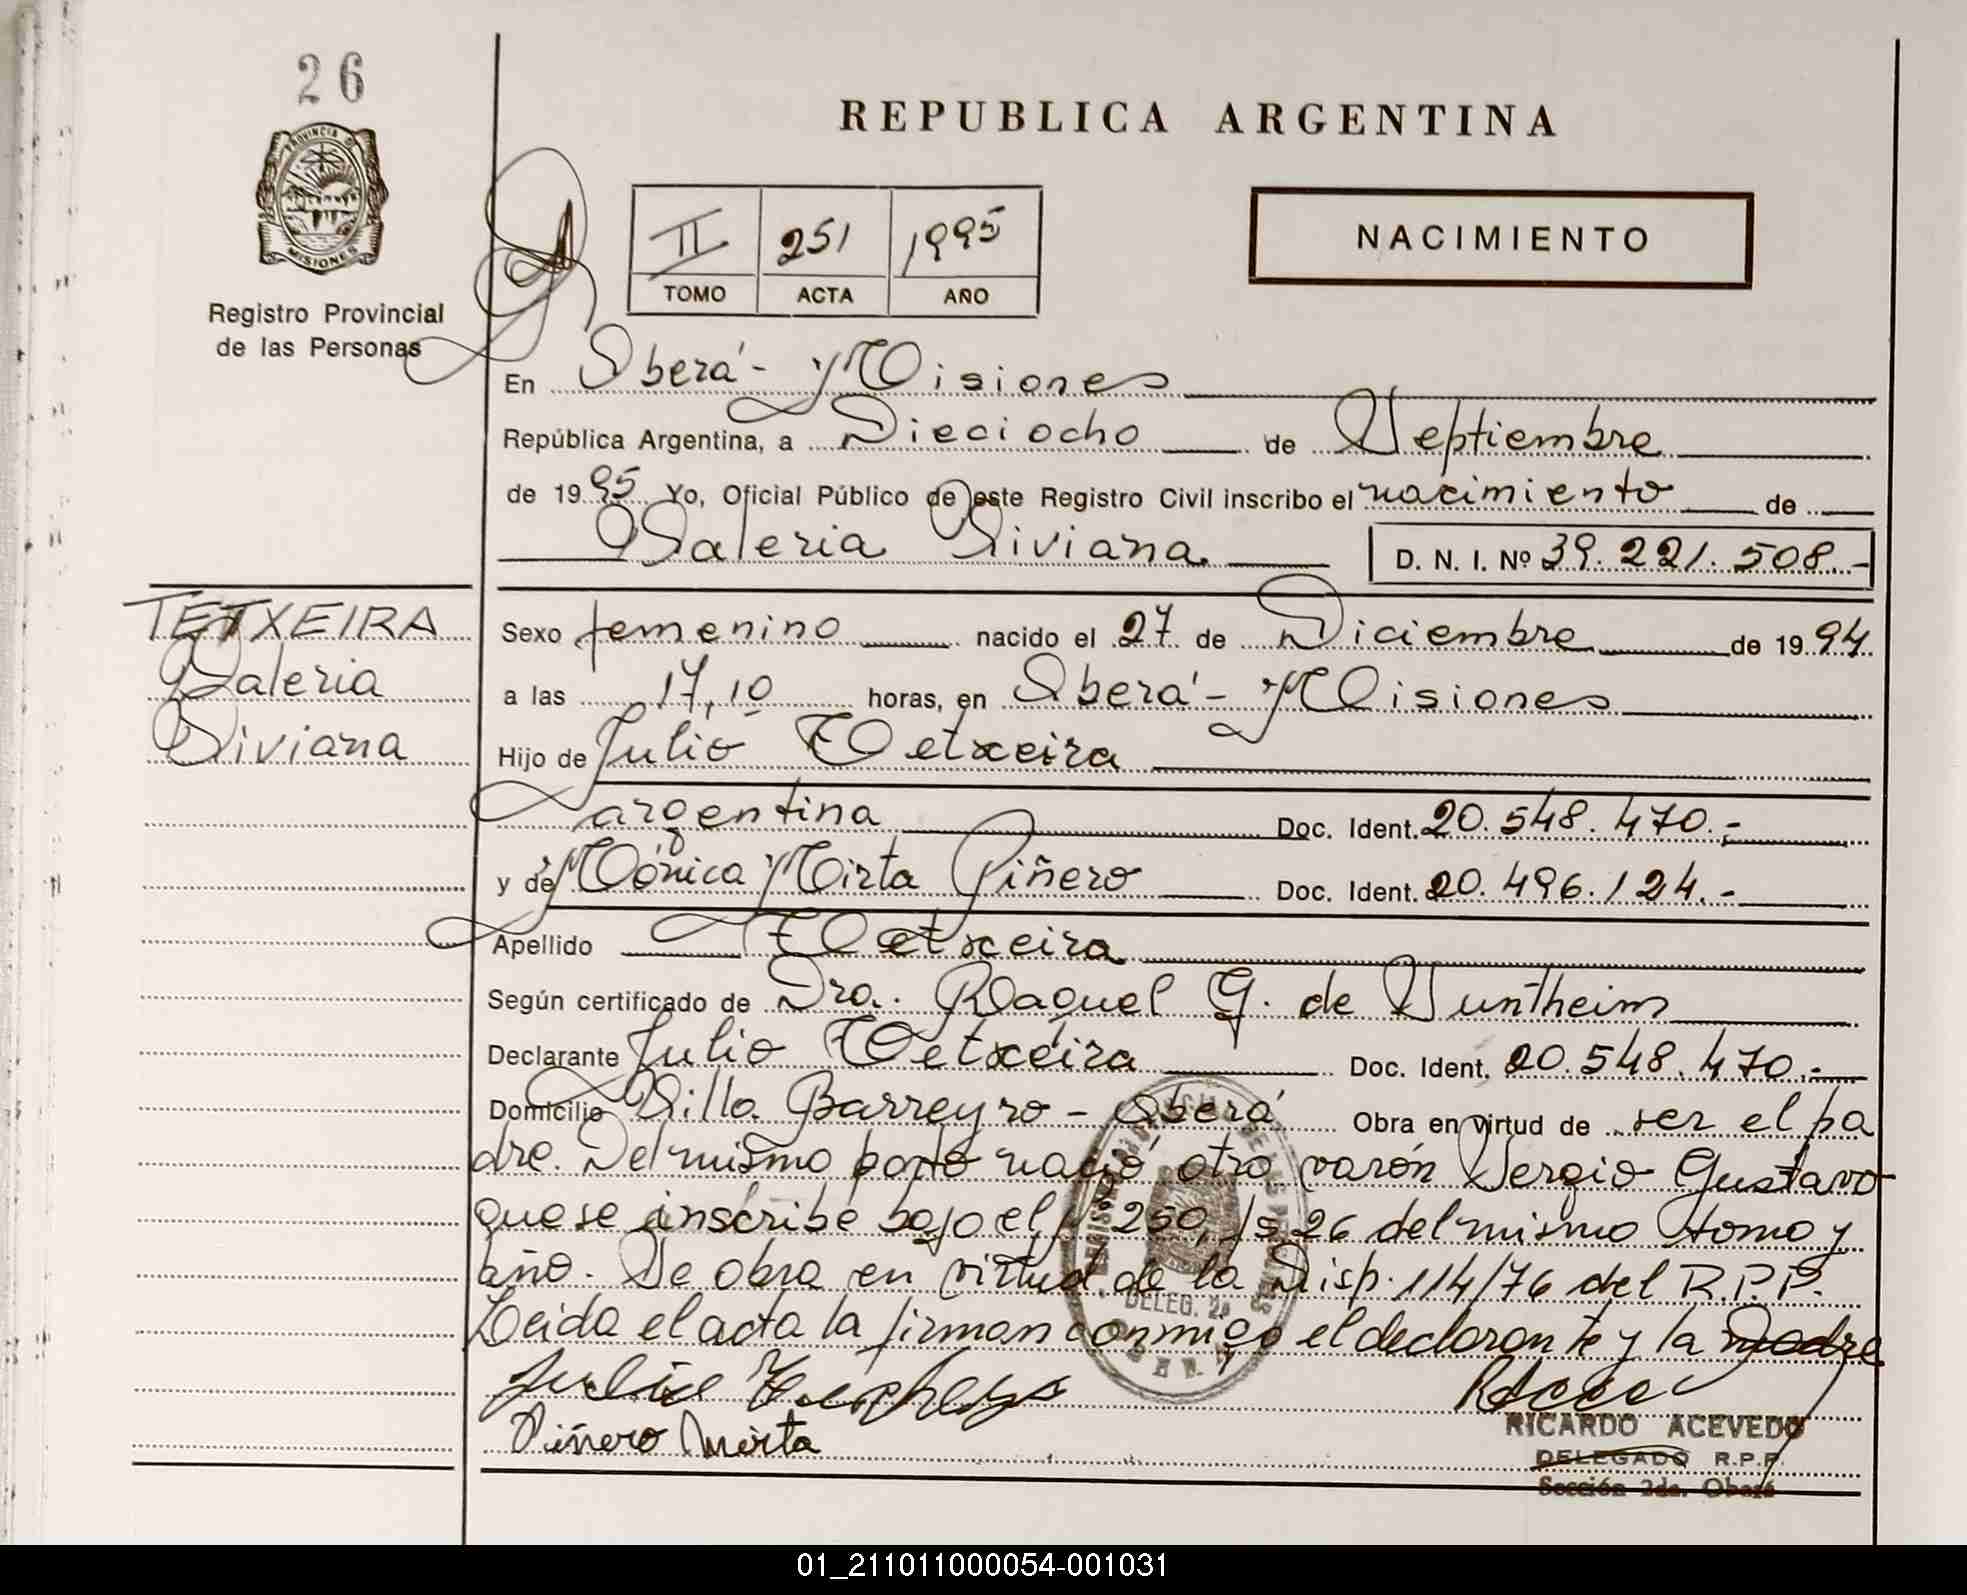 26
REPUBLICA ARGENTINA
PROVINCIA DE
MISIONES
Registro Provincial
de las Personas
II 251 1995
TOMO ACTA AÑO
NACIMIENTO
En Oberá - Misiones
República Argentina, a Dieciocho de Septiembre
de 1995 Yo, Oficial Público de este Registro Civil inscribo el nacimiento de
Valeria Viviana D. N. I. Nº 39.221.508.-
TETXEIRA
Valeria
Viviana
Sexo femenino nacido el 27 de Diciembre de 1994
a las 17,10 horas, en Oberá - Misiones
Hijo de Julio Tetxeira
argentina Doc. Ident. 20.548.470.-
y de Mónica Mirta Piñero Doc. Ident. 20.496.124.-
Apellido Tetxeira
Según certificado de Dra. Raquel G. de Suntheim
Declarante Julio Tetxeira Doc. Ident. 20.548.470.-
Domicilio Villa Barreyro - Oberá Obra en virtud de ser el pa
dre. Del mismo parto nació otro varón Sergio Gustavo
que se inscribe bajo el nº 250, fs 26 del mismo tomo y
año. Se obra en virtud de la Disp. 114/76 del R.P.P.
Leida el acta la firman conmigo el declarante y la madre
DELEG. 2a
Piñero Mirta
RICARDO ACEVEDO
DELEGADO R.P.P.
Sección 2da. Oberá
01_211011000054-001031